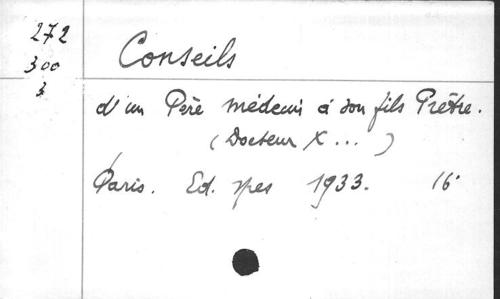 272
300
3
Conseils
d'un Père médecin à son fils Prêtre.
(Docteur X... )
Paris. Ed. Spes 1933. 16°